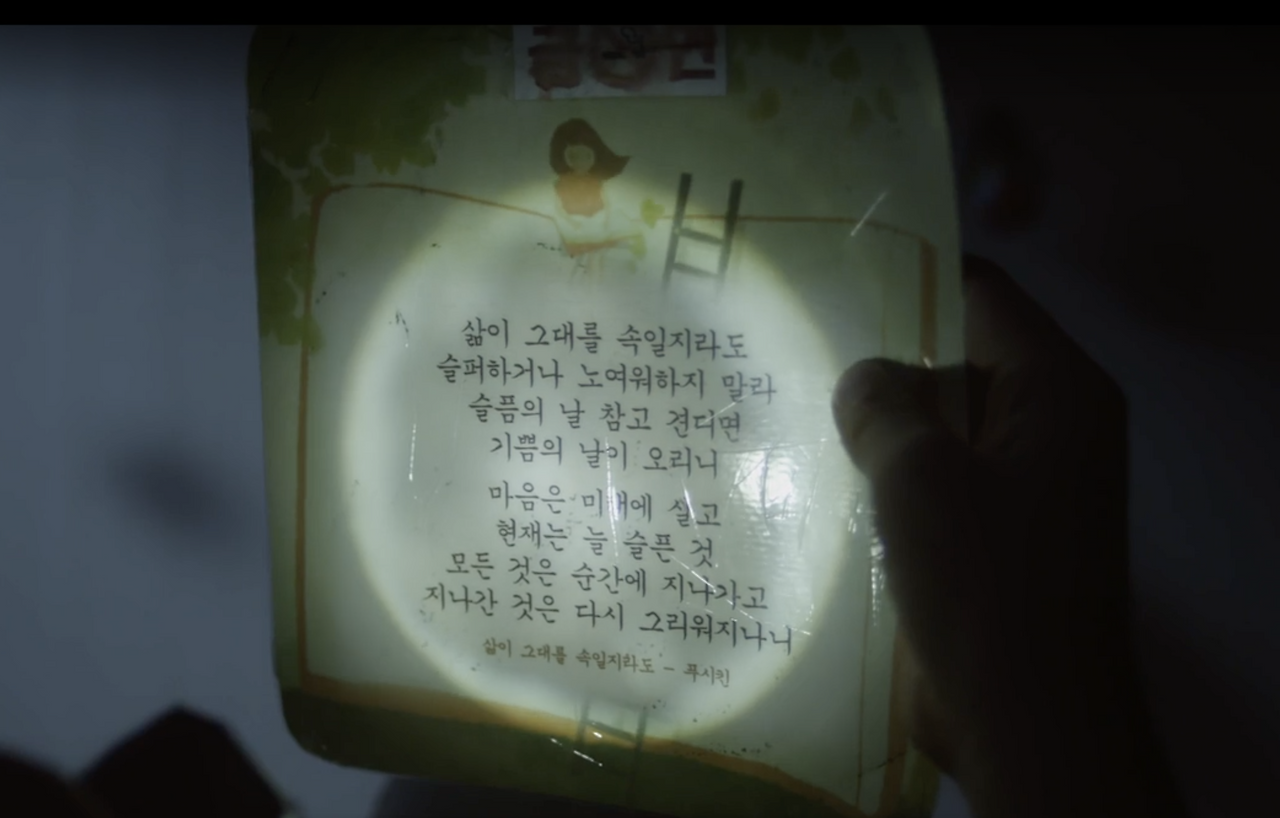 삶이 그대를 속일지라도
슬퍼하거나 노여워하지 말라
슬픔의 날 참고 견디면
기쁨의 날이 오리니
마음은 미래에 살고
현재는 늘 슬픈 것
모든 것은 순간에 지나가고
지나간 것은 다시 그리워지나니
삶이 그대를 속일지라도 - 푸시킨